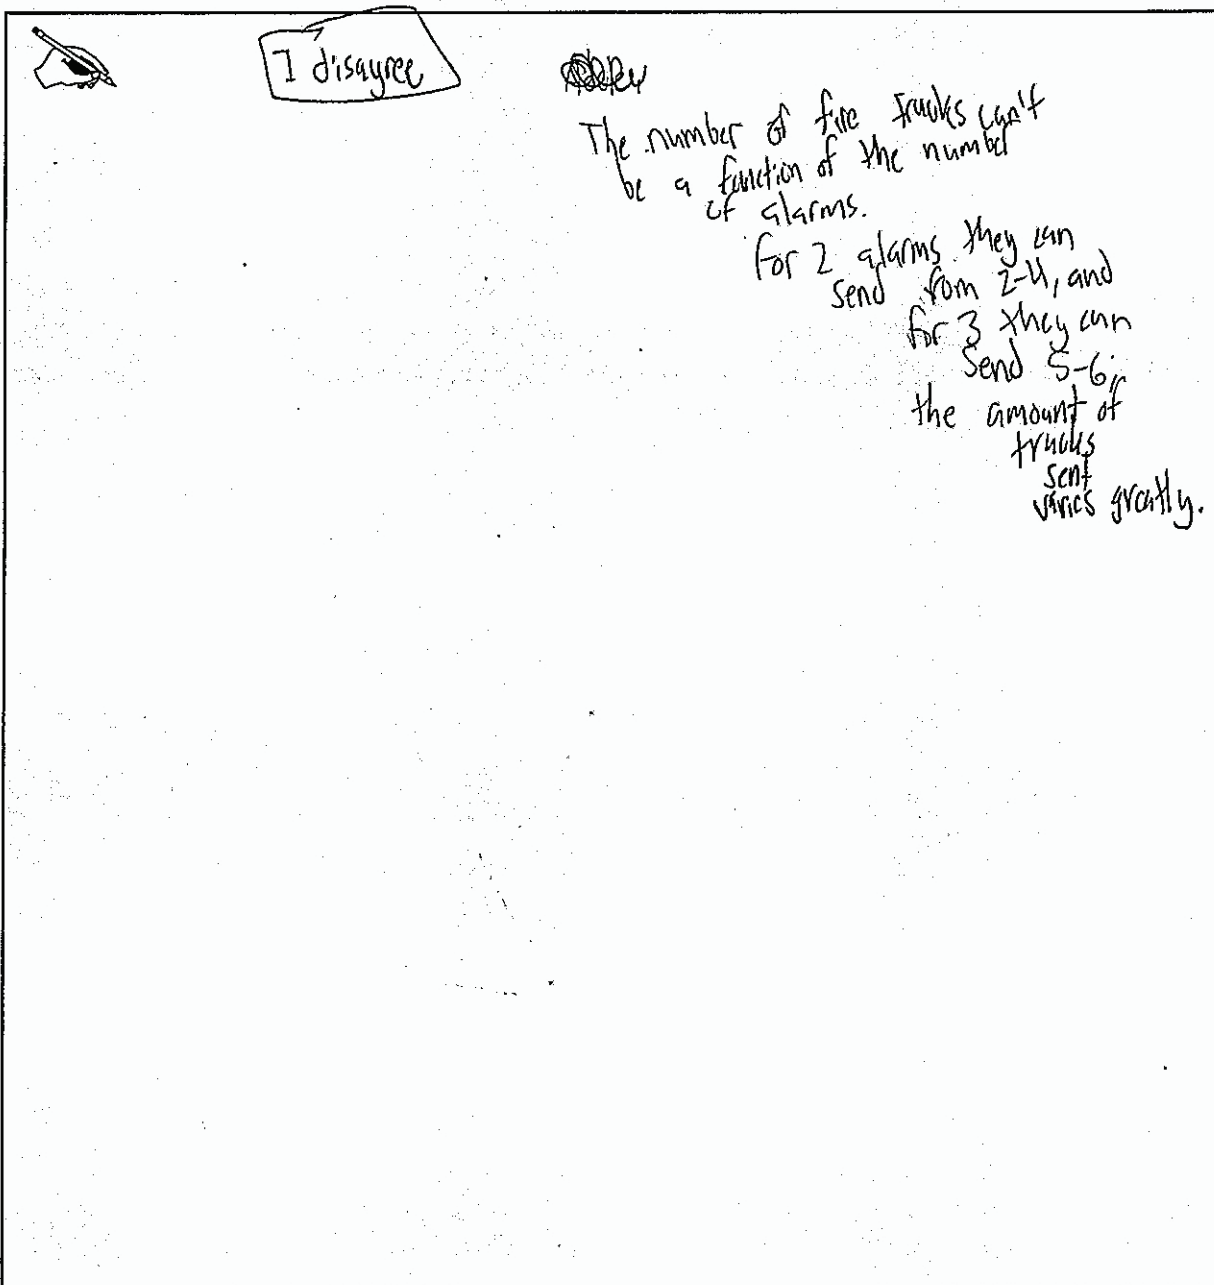 I disagree
The number of fire trucks can't
be a function of the number
of alarms.
for 2 alarms they can
send from 2-4, and
for 3 they can
send 5-6;
the amount of
trucks
sent
varies greatly.